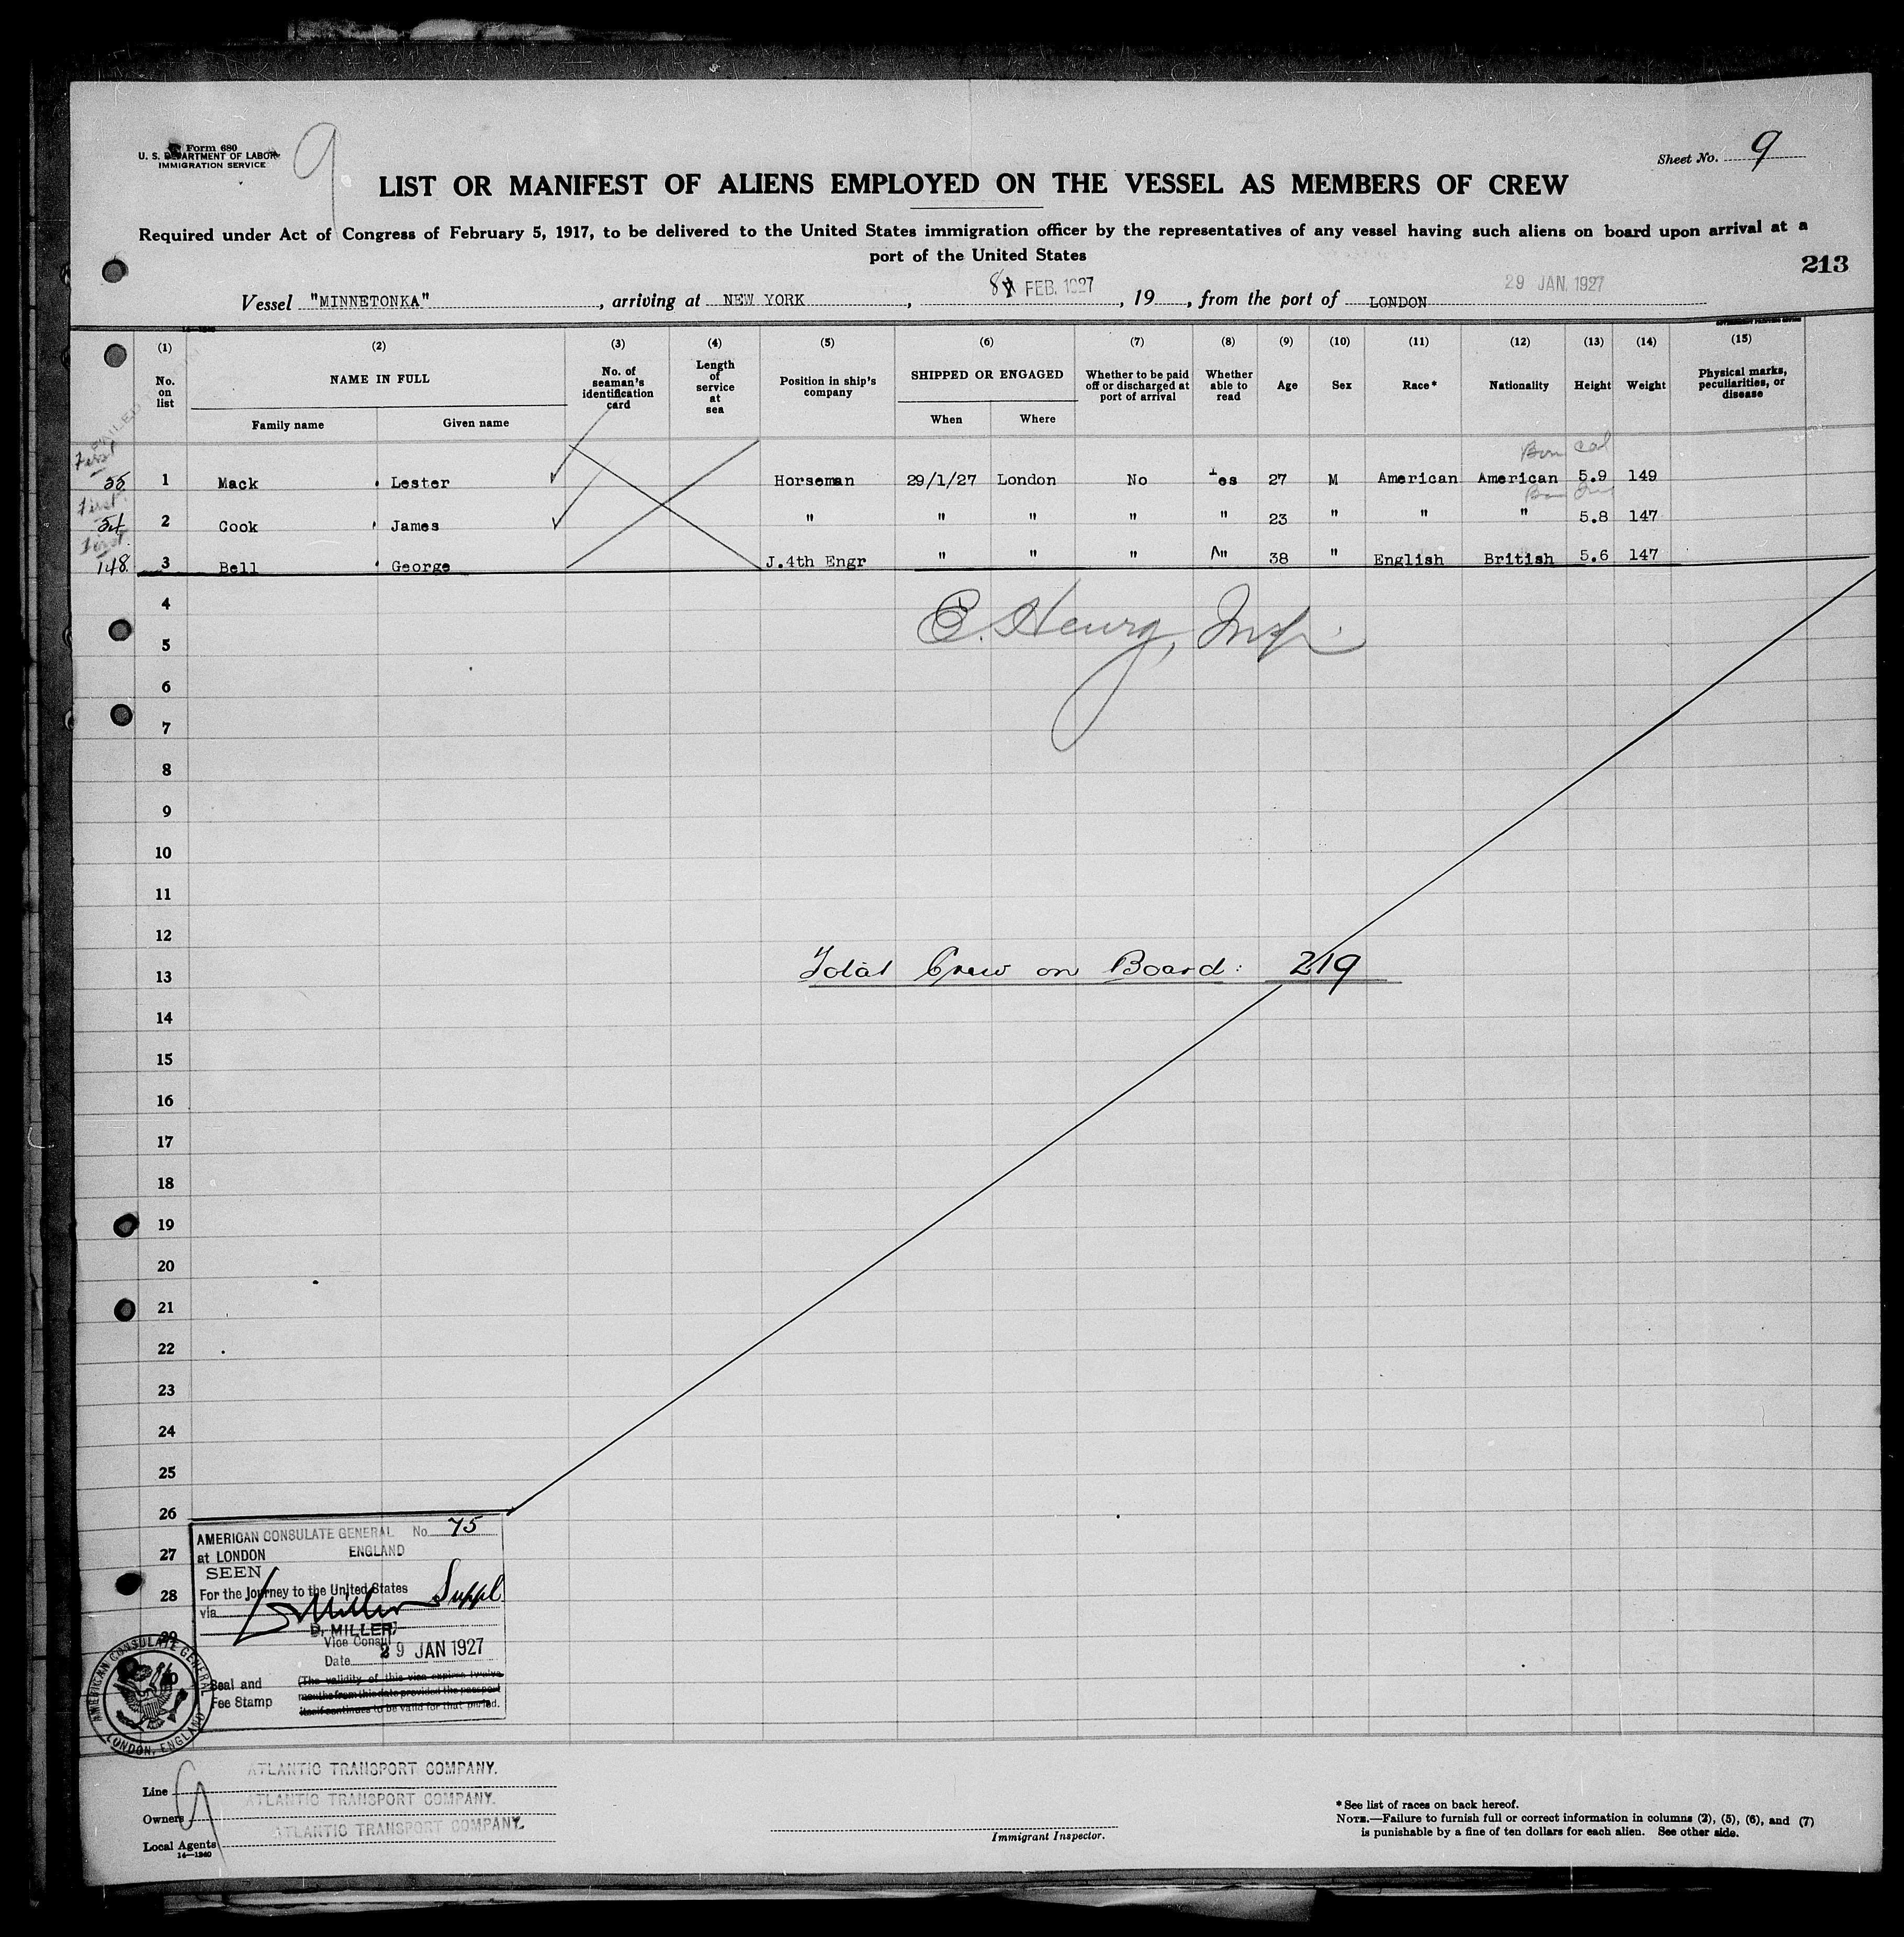 Form 680
U. S. DEPARTMENT OF LABOR
IMMIGRATION SERVICE
9
Sheet No. 9
LIST OR MANIFEST OF ALIENS EMPLOYED ON THE VESSEL AS MEMBERS OF CREW
Required under Act of Congress of February 5, 1917, to be delivered to the United States immigration officer by the representatives of any vessel having such aliens on board upon arrival at a
port of the United States
213
Vessel "MINNETONKA", arriving at NEW YORK, 8 FEB. 1927, 19, from the port of LONDON 29 JAN. 1927
(1) (2) (3) (4) (5) (6) (7) (8) (9) (10) (11) (12) (13) (14) (15)
No. on list NAME IN FULL No. of seaman's identification card Length of service at sea Position in ship's company SHIPPED OR ENGAGED Whether to be paid off or discharged at port of arrival Whether able to read Age Sex Race* Nationality Height Weight Physical marks, peculiarities, or disease
Family name Given name When Where
First
Born Cal
35 1 Mack Lester Horseman 29/1/27 London No Yes 27 M American American 5.9 149
First
34 2 Cook James " " " " " 23 " " " 5.8 147
First
148 3 Bell George J.4th Engr " " " " 38 " English British 5.6 147
4
E. Henry, Insp.
5
6
7
8
9
10
11
12
Total Crew on Board: 219
13
14
15
16
17
18
19
20
21
22
23
24
25
26
AMERICAN CONSULATE GENERAL No. 75
27 at LONDON ENGLAND
SEEN
28 For the Journey to the United States Suppl
via Miller
29 D. MILLER
Vice Consul
Date 29 JAN 1927
30 Seal and
Fee Stamp
(The validity of this visa expires twelve
months from this date provided the passport
itself continues to be valid for that period.
AMERICAN CONSULATE GENERAL
LONDON, ENGLAND
Line ATLANTIC TRANSPORT COMPANY.
Owners ATLANTIC TRANSPORT COMPANY.
Local Agents ATLANTIC TRANSPORT COMPANY.
14—1240
9
Immigrant Inspector.
* See list of races on back hereof.
NOTE.—Failure to furnish full or correct information in columns (2), (5), (6), and (7)
is punishable by a fine of ten dollars for each alien. See other side.